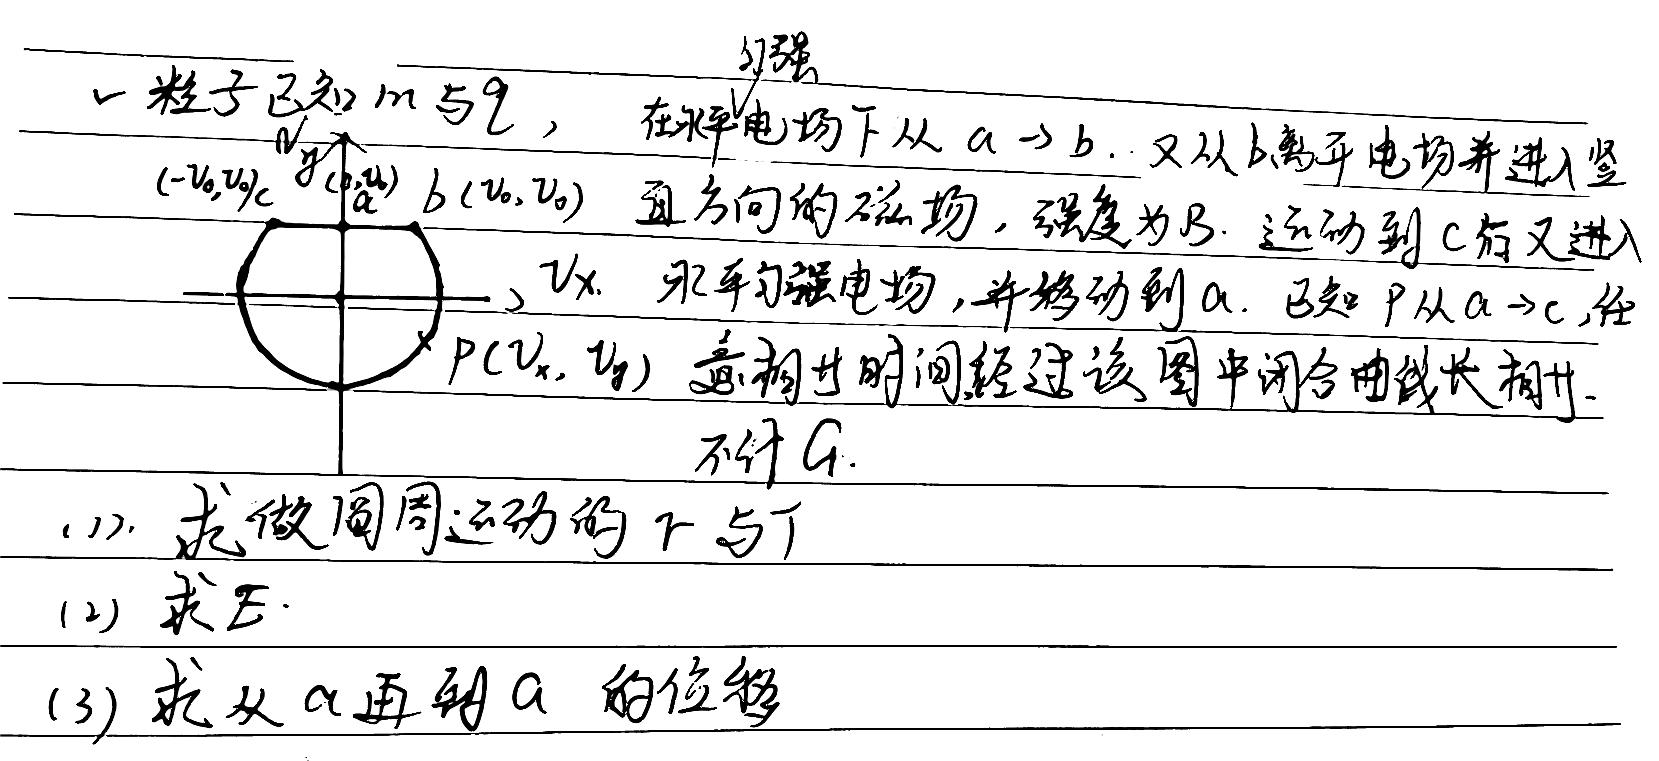 匀强
✓ 粒子已知m与q, 在水平电场下从 a→b. 又从b离开电场并进入竖
直方向的磁场,强度为B. 运动到c后又进入
水平匀强电场,并移动到a. 已知 P从a→c,任
意相等时间经过该图中闭合曲线长相等.
不计G.
Vy
(-V₀,V₀)c (0,V₀) a b(V₀,V₀)
Vx.
P(Vx, Vy)
(1). 求做圆周运动的 r 与T
(2) 求E.
(3) 求从a再到a 的位移